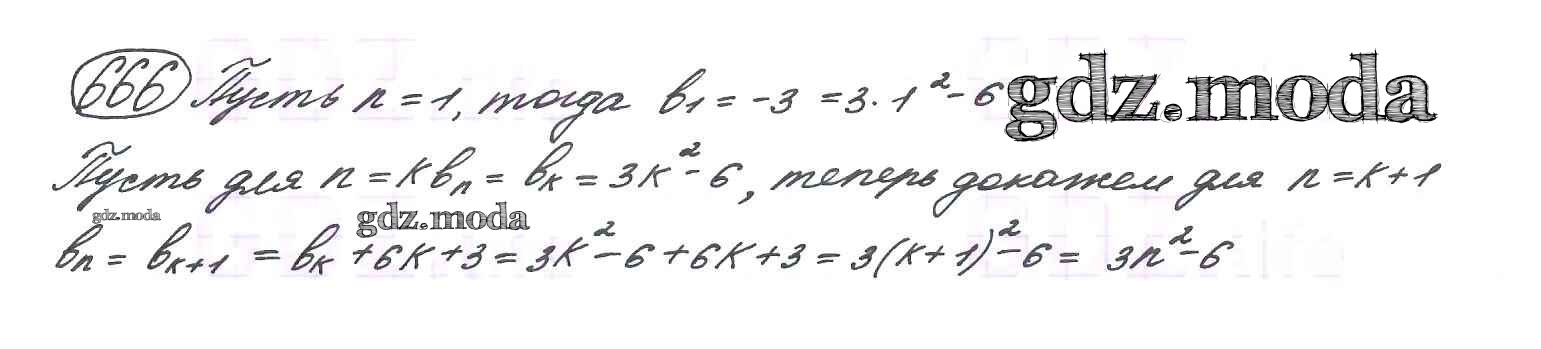 666 Пусть n = 1, тогда b₁ = -3 = 3·1² - 6 gdz.moda
Пусть для n = k bₙ = bₖ = 3k² - 6, теперь докажем для n = k + 1
gdz.moda gdz.moda
bₙ = bₖ₊₁ = bₖ + 6k + 3 = 3k² - 6 + 6k + 3 = 3(k + 1)² - 6 = 3n² - 6